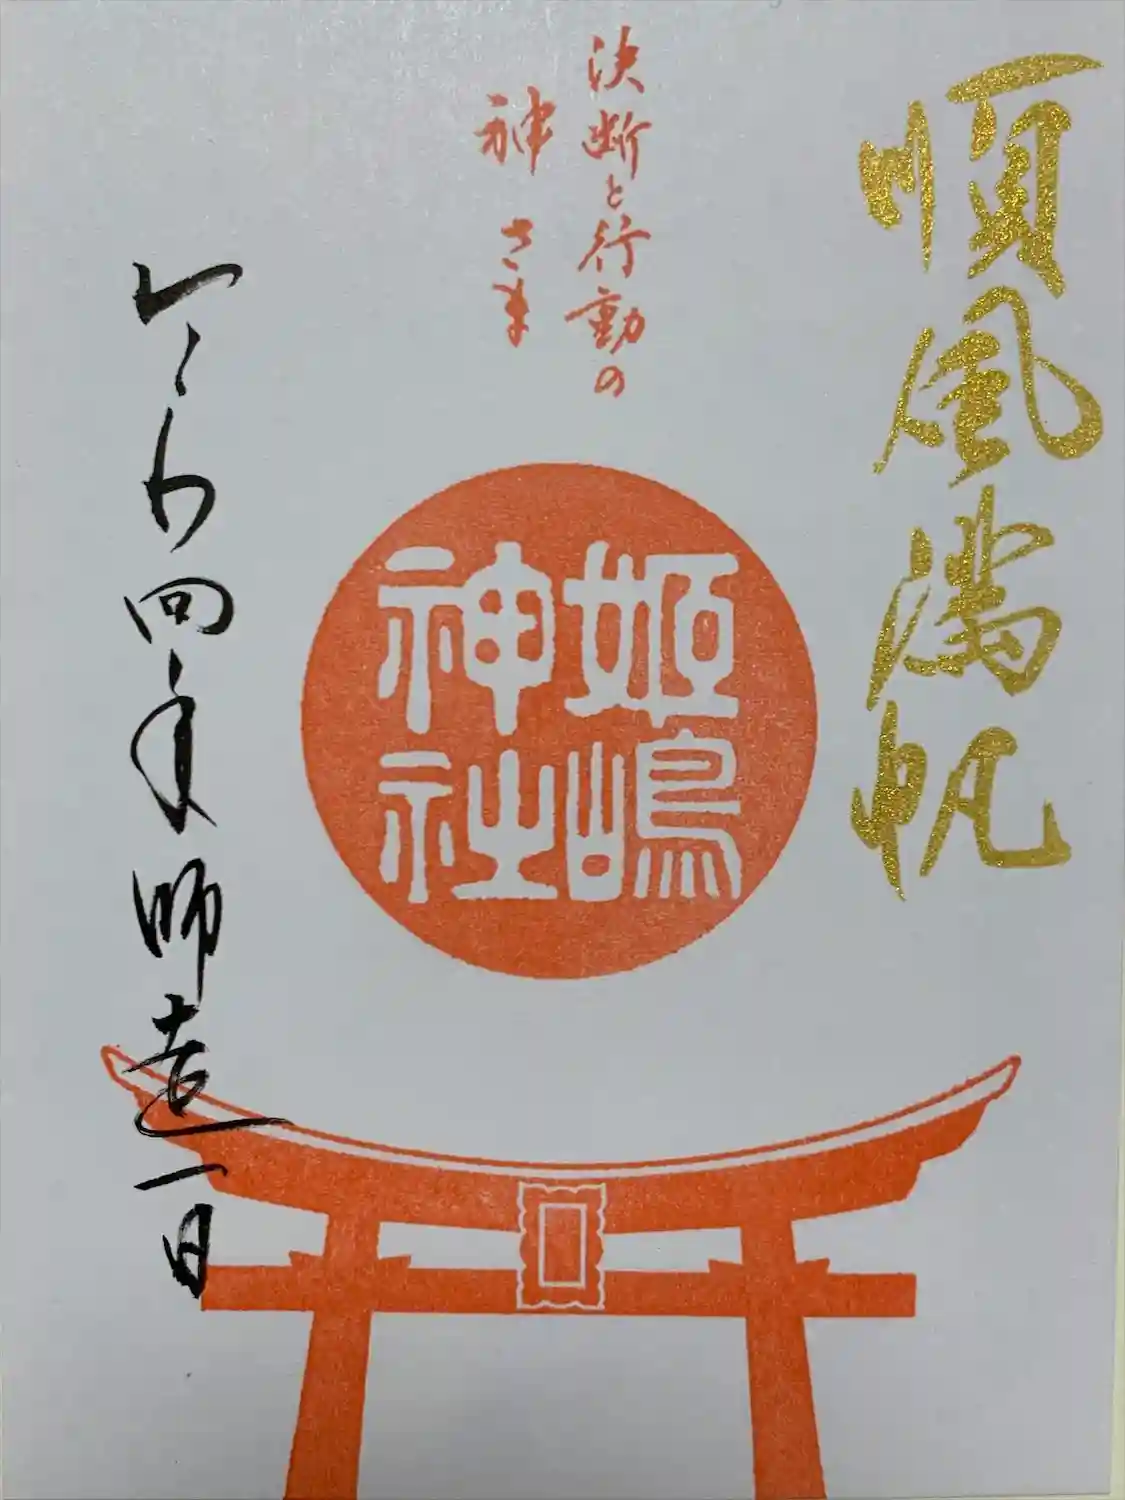 順風満帆
決断と行動の
神さま
姫嶋
神社
令和四年師走一日